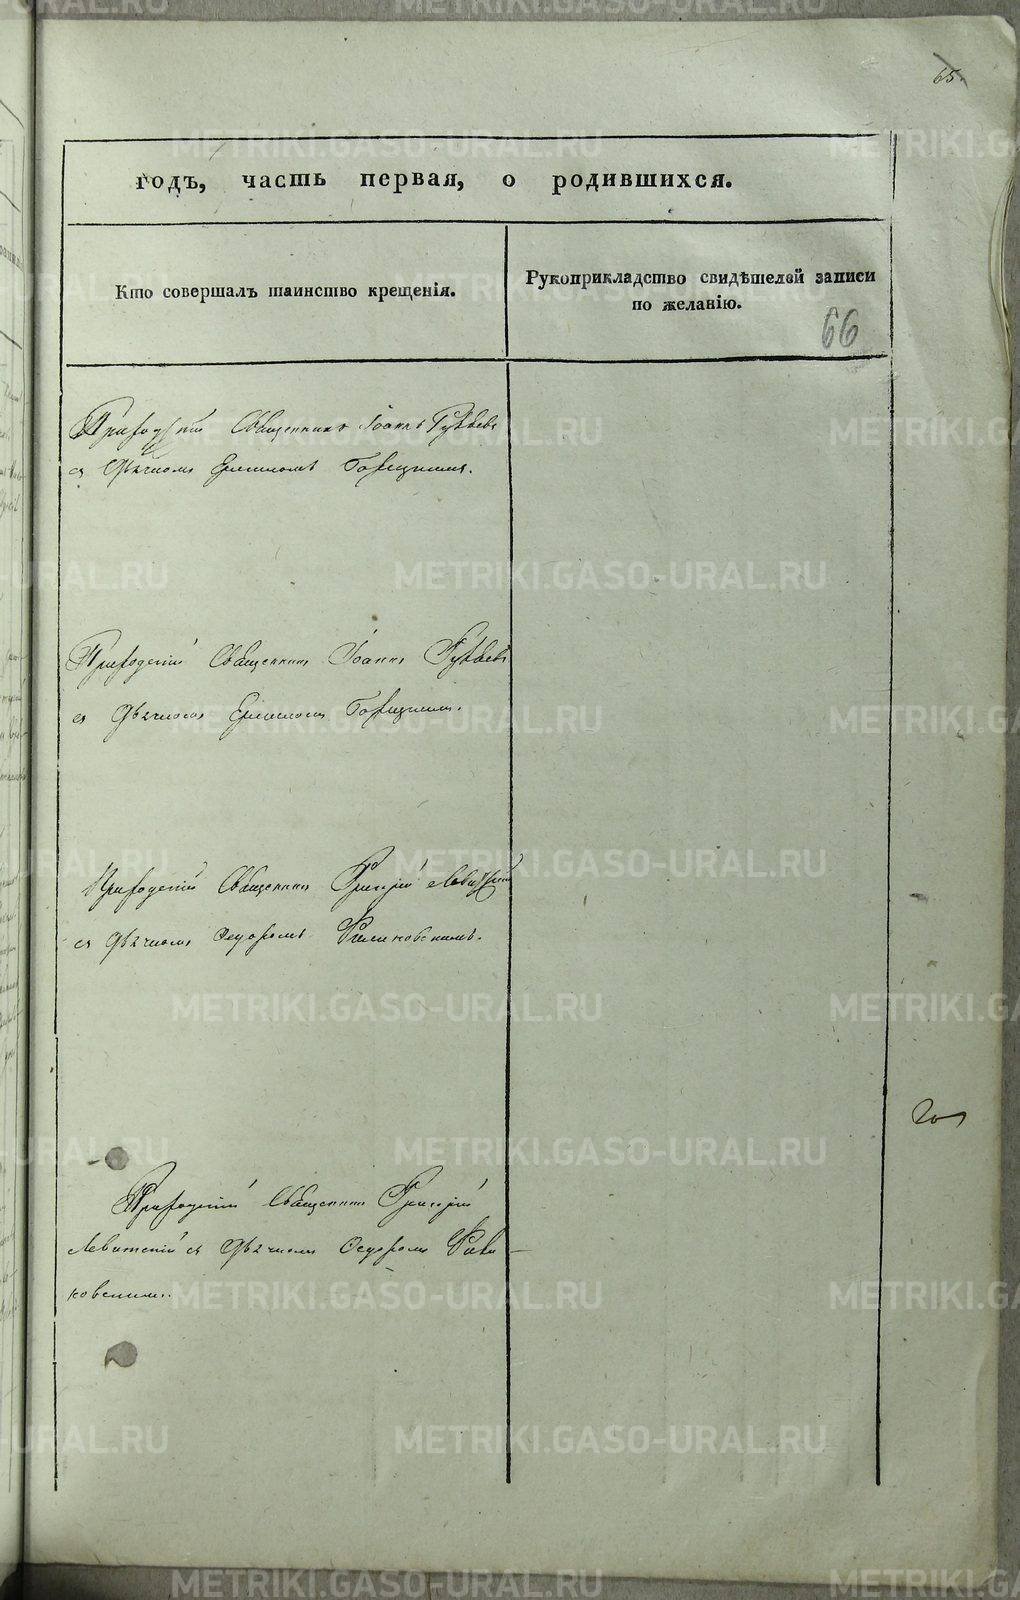 65.
годъ, часть первая, о родившихся.
Кто совершалъ таинство крещенія.
Рукоприкладство свидѣтелей записи
по желанію.
66
Приходскій Священникъ Іоаннъ
съ Дьячкомъ
Приходскій Священникъ Іоаннъ
съ Дьячкомъ
Приходскій Священникъ Григорій Левитскій
съ Дьячкомъ Ѳедоромъ
Приходскій Священникъ Григорій
Левитскій съ Дьячкомъ Ѳедоромъ
ковскимъ.
METRIKI.GASO-URAL.RU